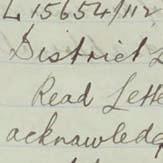 L 15654/112
District
Read Lette
acknawledg